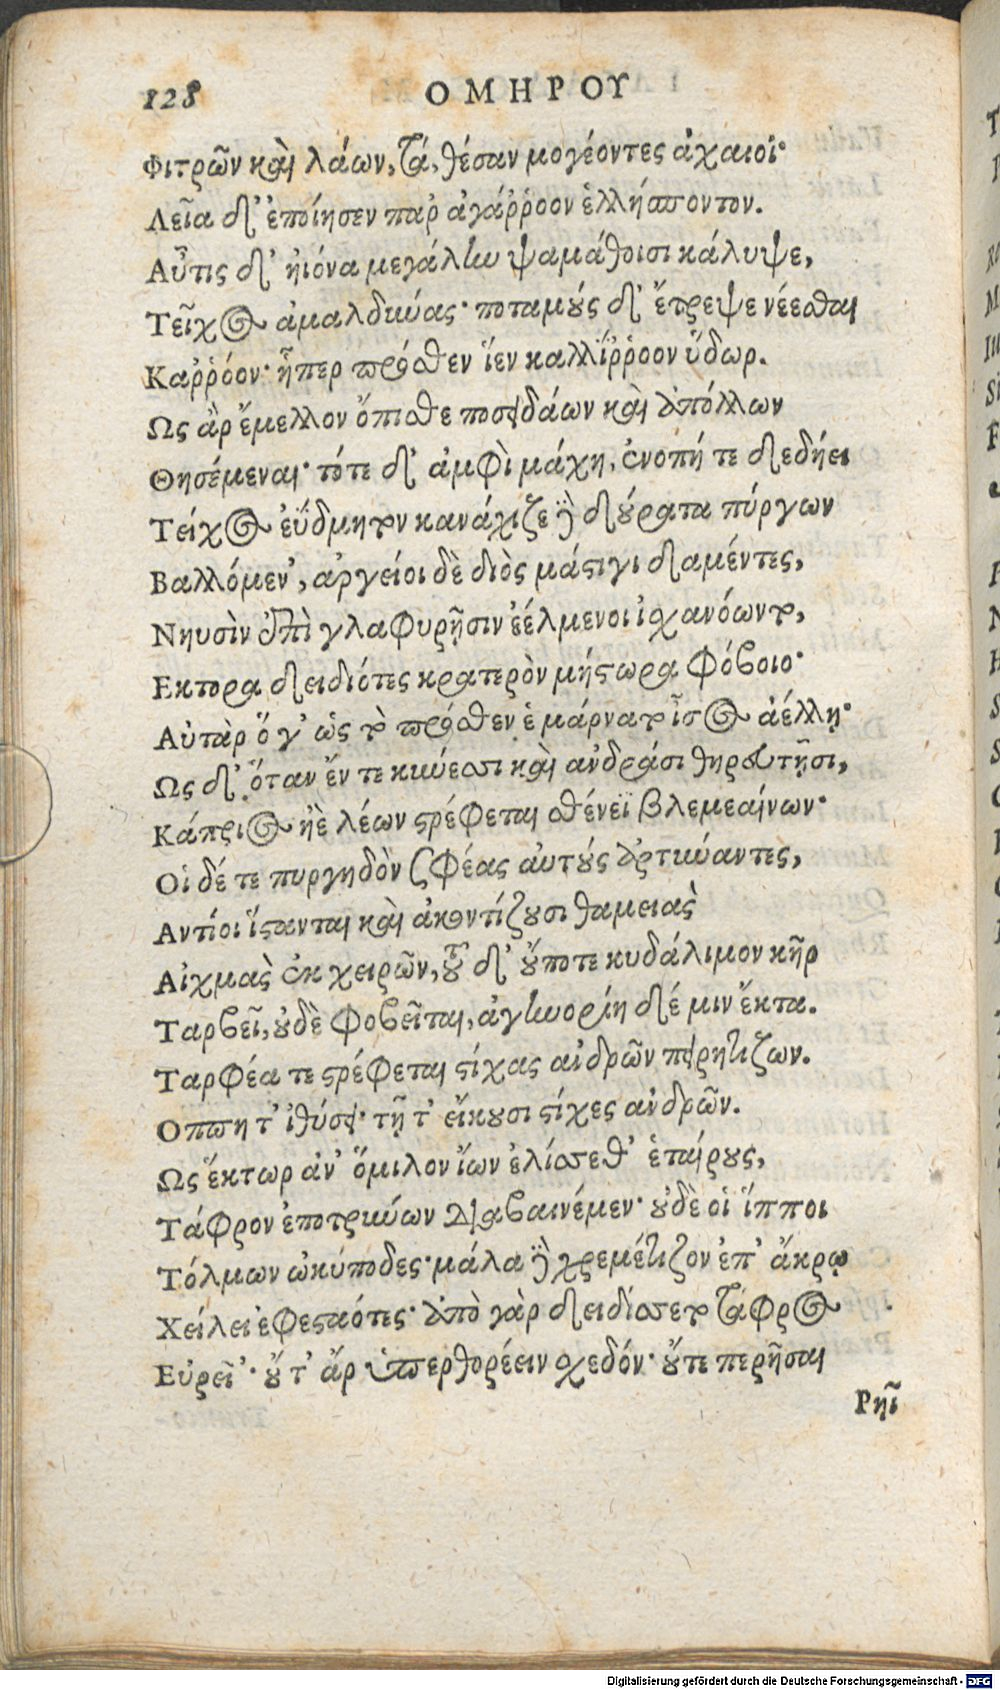 128 ΟΜΗΡΟΥ
Φιτρῶν καὶ λάων, τά, θέσαν μογέοντες ἀχαιοί·
Λεῖα δ' ἐποίησεν παρ ἀγάῤῥοον ἑλλήσποντον.
Αὖτις δ' ἠιόνα μεγάλην ψαμάθοισι κάλυψε,
Τεῖχος ἀμαλδύνας· ποταμοὺς δ' ἔτρεψε νέεσθαι
Καῤῥόον· ἧπερ πρόσθεν ἵεν καλλίῤῥοον ὕδωρ.
Ως ἂρ ἔμελλον ὄπισθε ποσειδάων καὶ ἀπόλλων
Θησέμεναι· τότε δ' ἀμφὶ μάχη, ἐνοπή τε δεδήει
Τεῖχος ἐΰδμητον κανάχιζε δὲ δούρατα πύργων
Βαλλόμεν', ἀργείοι δὲ διὸς μάστιγι δαμέντες,
Νηυσὶν ἐπὶ γλαφυρῇσιν ἐέλμενοι ἰσχανόωντο,
Εκτορα δειδιότες κρατερὸν μήστωρα φόβοιο·
Αὐτὰρ ὅ γ' ὡς τὸ πρόσθεν ἐμάρνατο ἶσος ἀέλλῃ·
Ως δ' ὅταν ἔν τε κύνεσσι καὶ ἀνδράσι θηρευτῇσι,
Κάπριος ἠὲ λέων στρέφεται σθένεϊ βλεμεαίνων·
Οἱ δέ τε πυργηδὸν σφέας αὐτοὺς ἀρτύναντες,
Αντίοι ἵστανται καὶ ἀκοντίζουσι θαμειὰς
Αἰχμὰς ἐκ χειρῶν, τοῦ δ' οὔποτε κυδάλιμον κῆρ
Ταρβεῖ, οὐδὲ φοβεῖται, ἀγηνορίη δέ μιν ἔκτα.
Ταρφέα τε στρέφεται στίχας ἀνδρῶν πειρητίζων.
Οππη τ' ἰθύσει· τῇ τ' εἴκουσι στίχες ἀνδρῶν.
Ως ἕκτωρ ἀν' ὅμιλον ἴων ἐλίσσεθ' ἑταίρους,
Τάφρον ἐποτρύνων διαβαινέμεν· οὐδὲ οἱ ἵπποι
Τόλμων ὠκύποδες· μάλα δὲ χρεμέτιζον ἐπ' ἄκρῳ
Χείλει ἐφεσταότες· ἀπὸ γὰρ δειδίσσετο τάφρος
Εὐρεῖ'· οὔτ' ἂρ ὑπερθορέειν σχεδόν· οὔτε περῆσαι
Ρηϊ
Digitalisierung gefördert durch die Deutsche Forschungsgemeinschaft - DFG